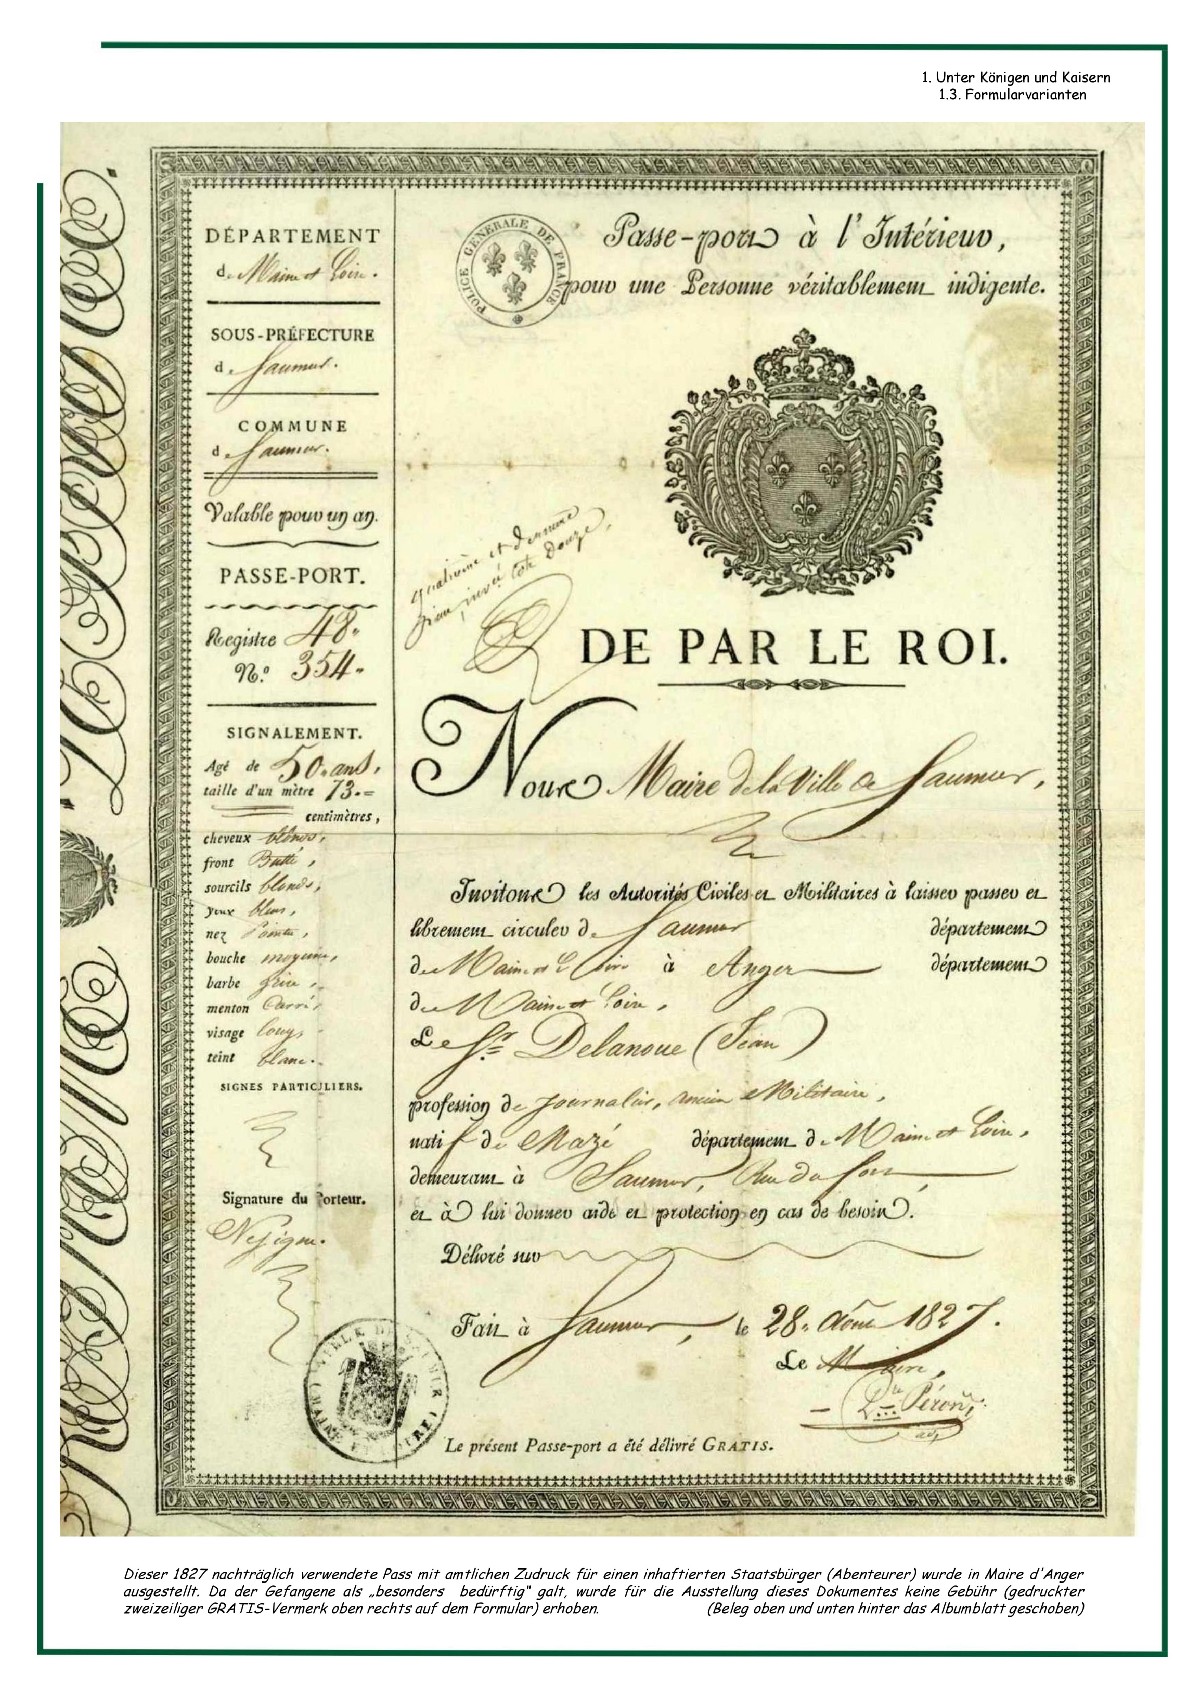 1. Unter Königen und Kaisern
1.3. Formularvarianten
DÉPARTEMENT
de Maine et Loire.
SOUS-PRÉFECTURE
de Saumur.
COMMUNE
de Saumur.
Valable pour un an.
PASSE-PORT.
Registre 48.
N.º 354.
SIGNALEMENT.
Agé de 50. ans,
taille d'un mètre 73.=
centimètres,
cheveux blonds,
front
sourcils blonds,
yeux bleus,
nez Pointu,
bouche moyenne,
barbe grise,
menton Carré,
visage long,
teint blanc.
SIGNES PARTICULIERS.
Signature du Porteur.
Ne signe.
VILLE DE SAUMUR (MAINE ET LOIRE)
POLICE GÉNÉRALE DE FRANCE
Passe-port à l'Intérieur,
pour une Personne véritablement indigente.
quatrième et dernière
DE PAR LE ROI.
Nous Maire de la Ville de Saumur,
Invitons les Autorités Civiles et Militaires à laisser passer et
librement circuler de Saumur département
de Maine et Loire à Anger département
de Maine et Loire,
Le Sr. Delanoue (Jean)
profession de Journalier, ancien Militaire,
natif de Mazé département de Maine et Loire,
demeurant à Saumur, Rue du
et à lui donner aide et protection en cas de besoin.
Délivré sur
Fait à Saumur, le 28. Août 1827.
Le Maire,
Le présent Passe-port a été délivré GRATIS.
Dieser 1827 nachträglich verwendete Pass mit amtlichen Zudruck für einen inhaftierten Staatsbürger (Abenteurer) wurde in Maire d'Anger
ausgestellt. Da der Gefangene als „besonders bedürftig" galt, wurde für die Ausstellung dieses Dokumentes keine Gebühr (gedruckter
zweizeiliger GRATIS-Vermerk oben rechts auf dem Formular) erhoben. (Beleg oben und unten hinter das Albumblatt geschoben)